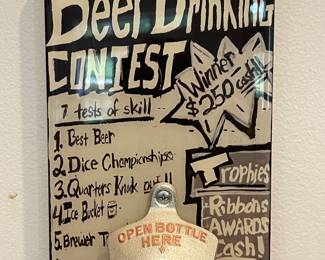 Beer Drinking
CONTEST
Winner
$250 cash!!
7 tests of skill
1. Best Beer
2. Dice Championships
3. Quarters
4. Ice Bucket
5. Brewer
Trophies
Ribbons
AWARDS
Cash!
OPEN BOTTLE
HERE